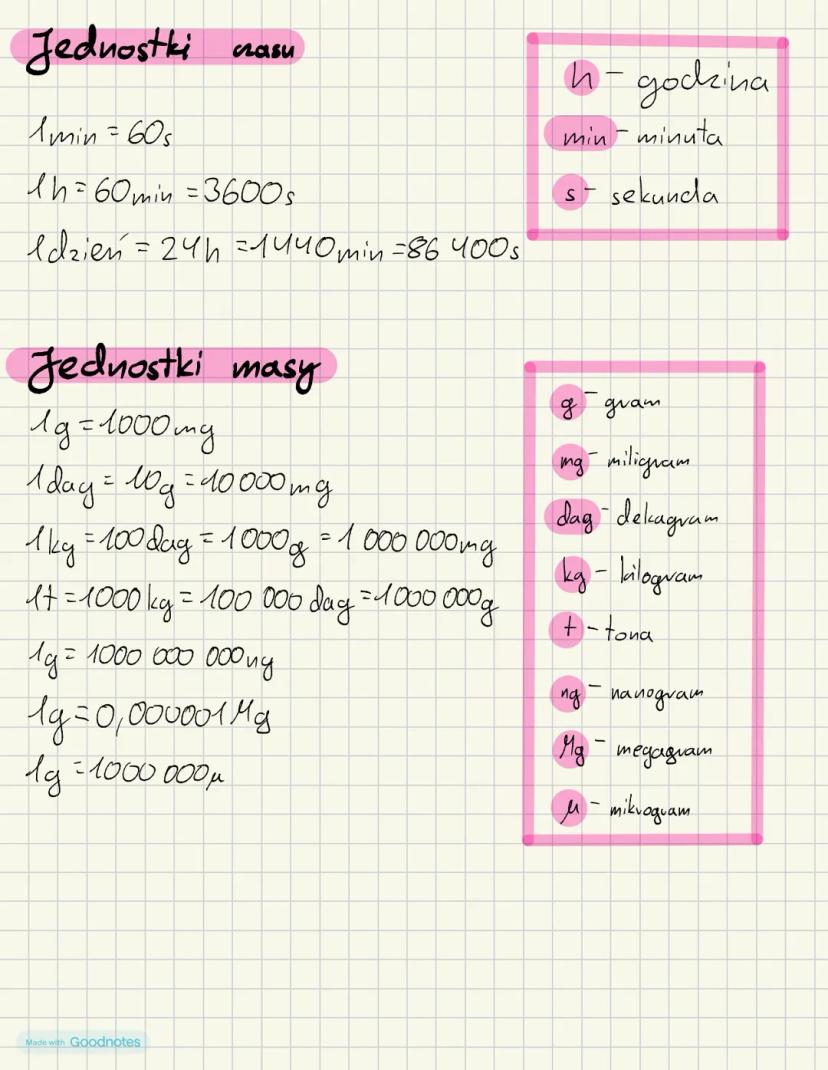 Jednostki czasu
1min = 60s
1h = 60min = 3600s
1dzień = 24h = 1440min = 86 400s
h - godzina
min - minuta
s - sekunda
Jednostki masy
1g = 1000mg
1dag = 10g = 10 000mg
1kg = 100dag = 1000g = 1 000 000mg
1t = 1000kg = 100 000dag = 1000 000g
1g = 1000 000 000ng
1g = 0,000001Mg
1g = 1000 000μ
g - gram
mg - miligram
dag - dekagram
kg - kilogram
t - tona
ng - nanogram
Mg - megagram
μ - mikrogram
Made with Goodnotes